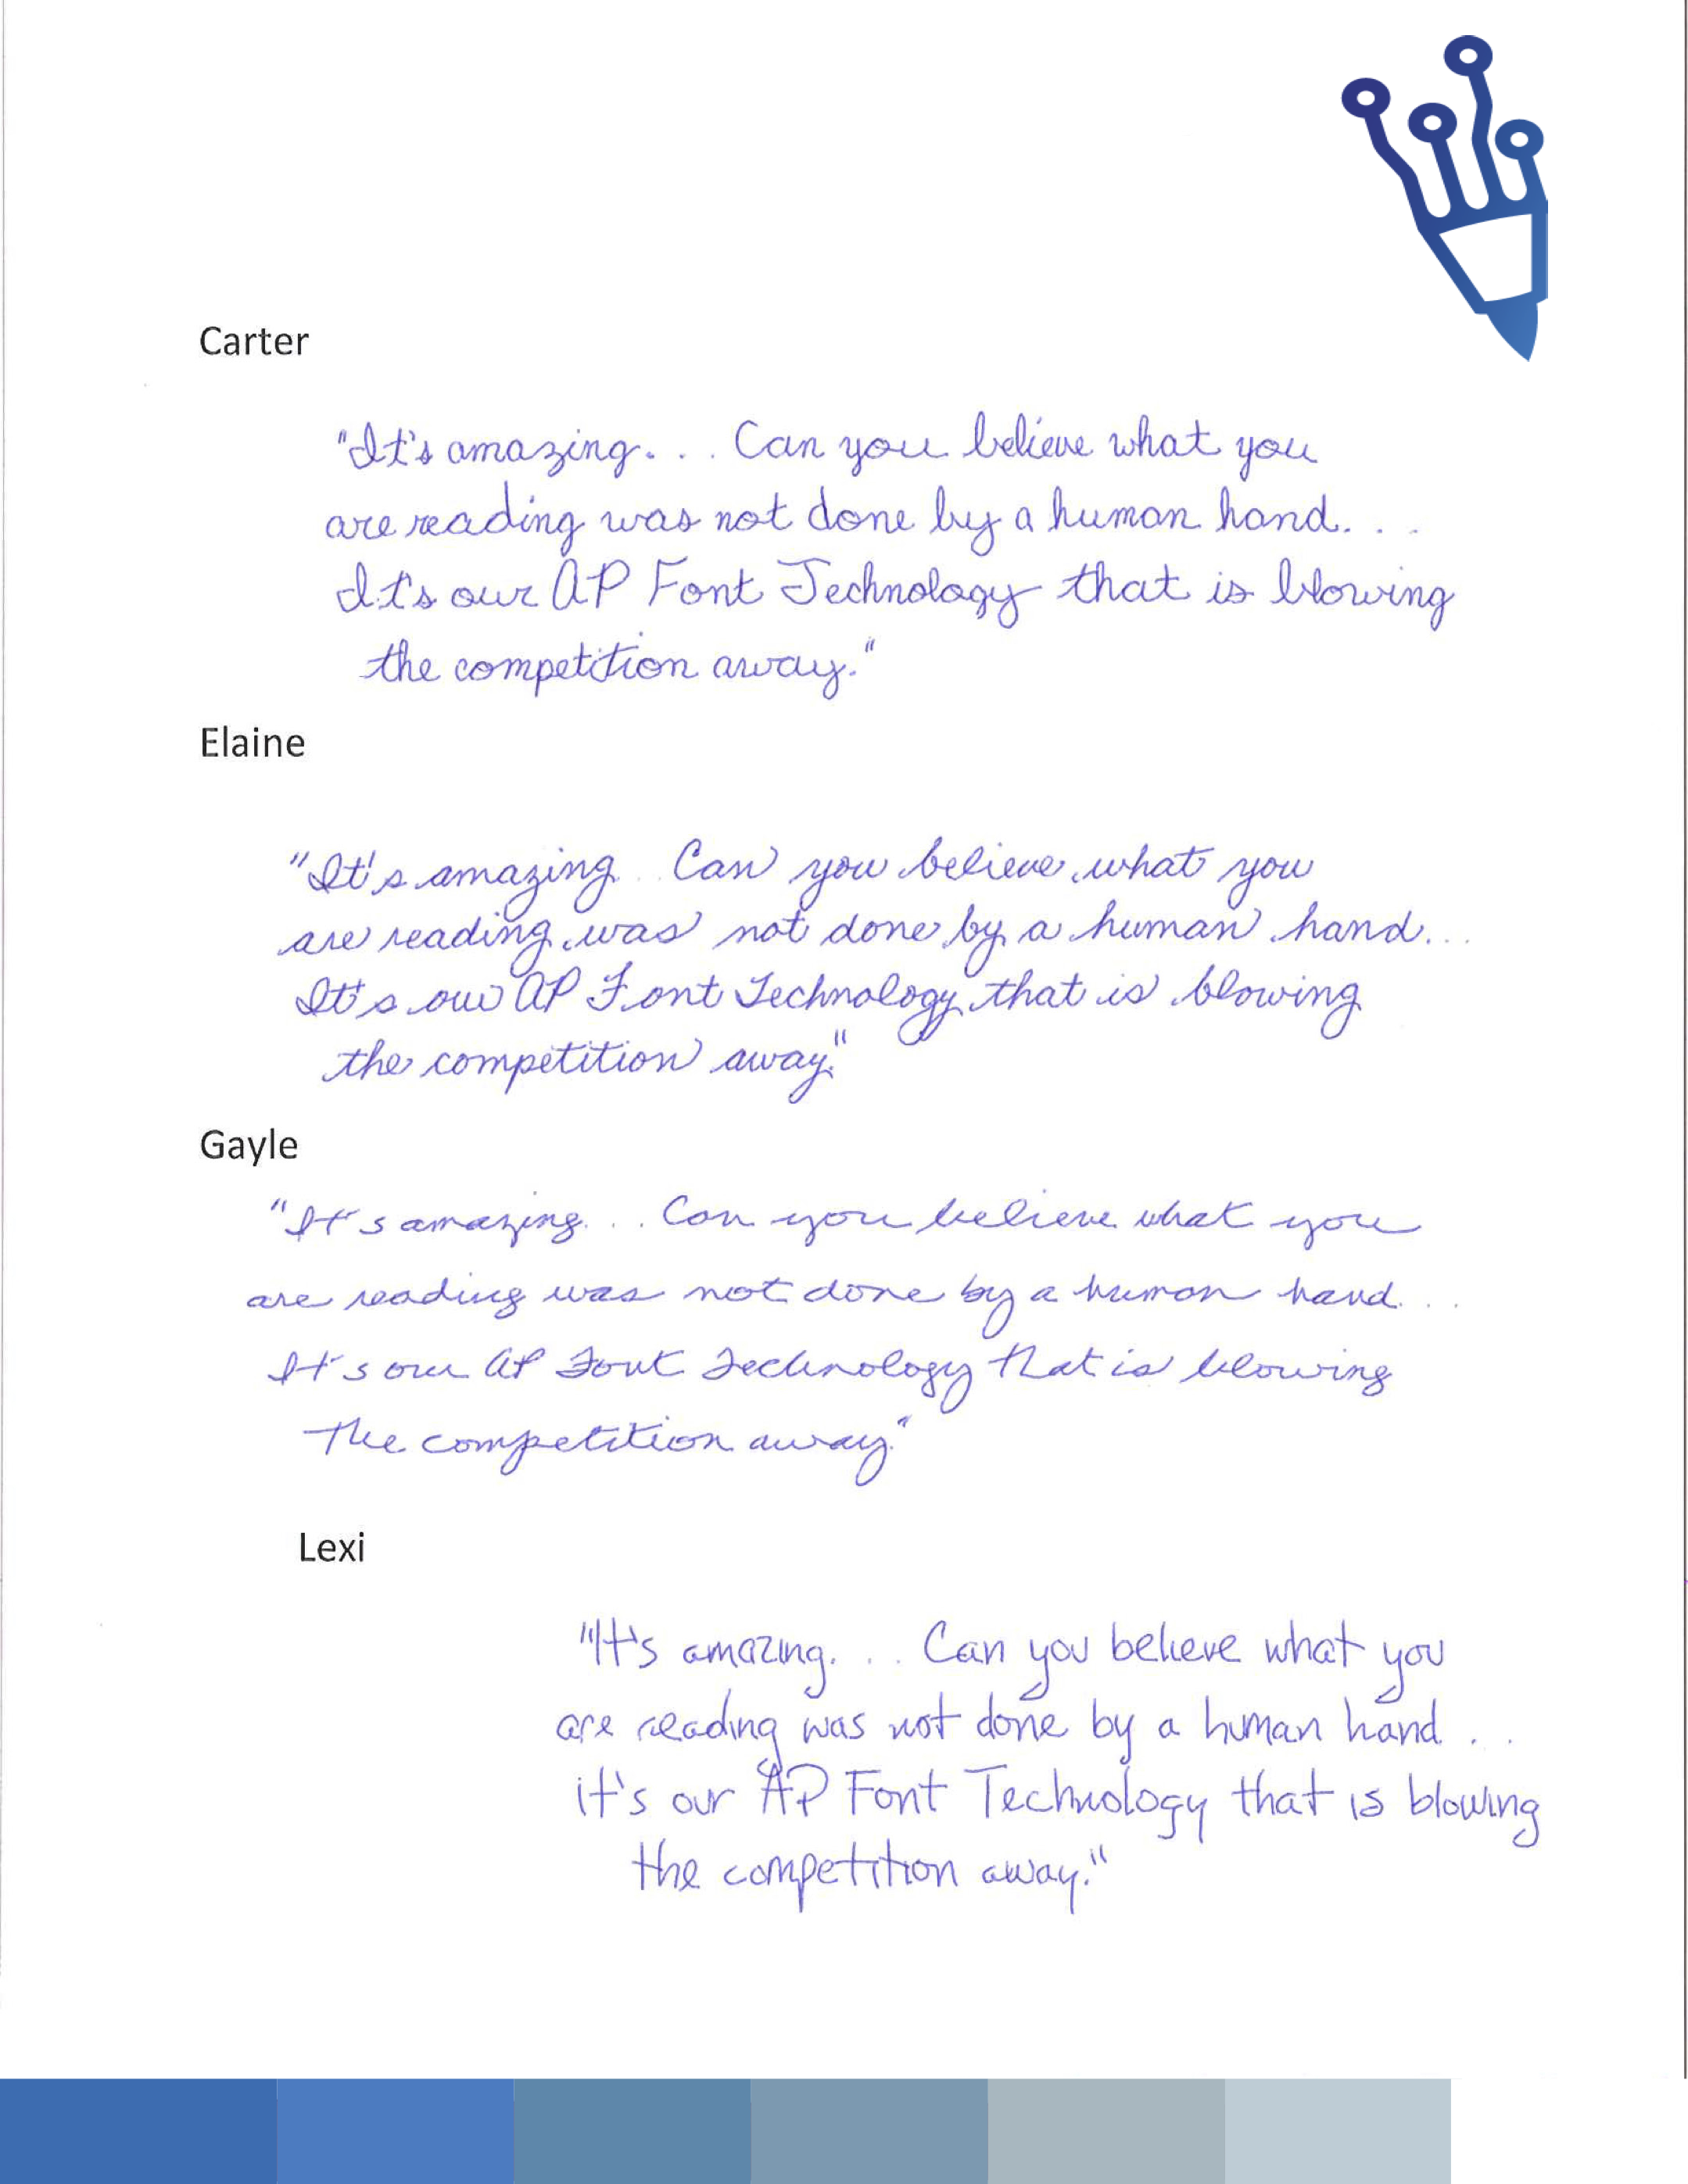 Carter
"It's amazing. . . Can you believe what you
are reading was not done by a human hand. . .
It's our AP Font Technology that is blowing
the competition away."
Elaine
"It's amazing. . . Can you believe what you
are reading was not done by a human hand...
It's our AP Font Technology that is blowing
the competition away."
Gayle
"It's amazing. . . Can you believe what you
are reading was not done by a human hand. . .
It's our AP Font Technology that is blowing
the competition away."
Lexi
"It's amazing. . . Can you believe what you
are reading was not done by a human hand . . .
it's our AP Font Technology that is blowing
the competition away."